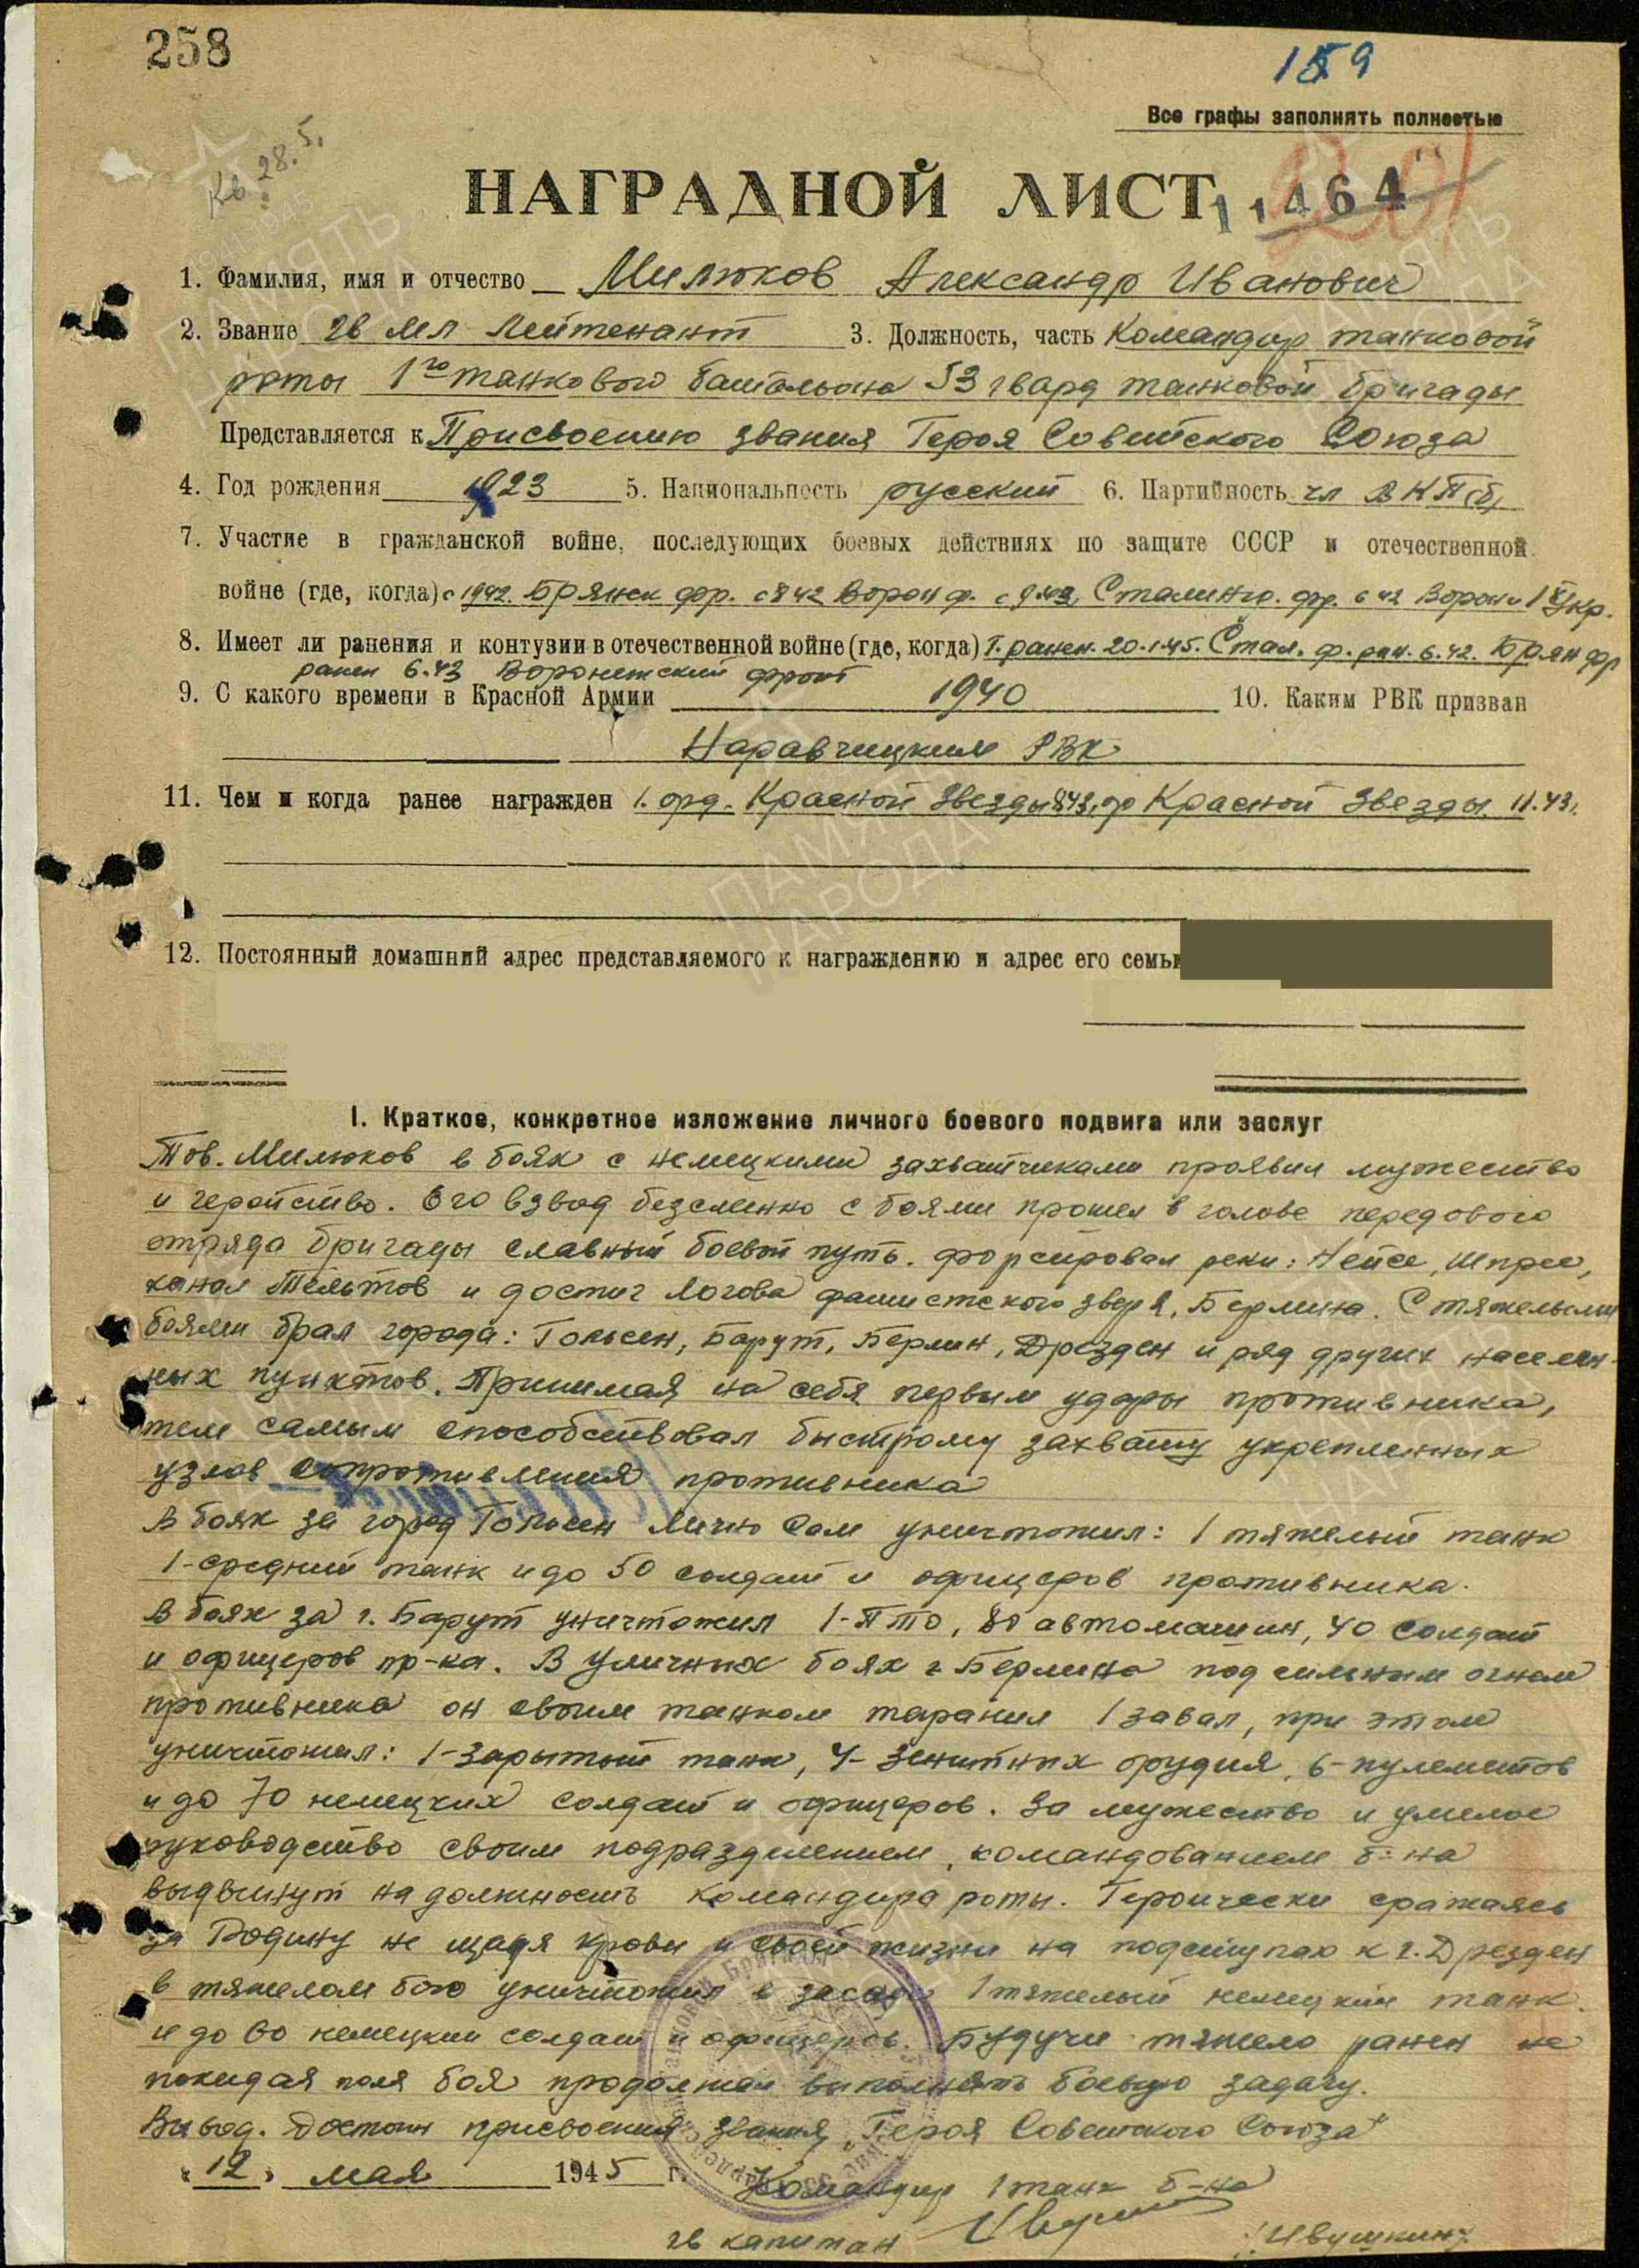 258
159
Все графы заполнять полностью
Кв 28.5.
НАГРАДНОЙ ЛИСТ 11464
1. Фамилия, имя и отчество Милюков Александр Иванович
2. Звание гв мл Лейтенант 3. Должность, часть Командир танковой
роты 1го танкового батальона 53 гвард танковой бригады
Представляется к Присвоению звания Героя Советского Союза
4. Год рождения 1923 5. Национальность русский 6. Партийность чл ВКП(б)
7. Участие в гражданской войне, последующих боевых действиях по защите СССР и отечественной
войне (где, когда) с 1942. Брянск фр. с 8 42 Ворон ф. с 9.42, Сталингр. фр. с 42 Ворон и 1й Укр.
8. Имеет ли ранения и контузии в отечественной войне (где, когда) Т. ранен. 20.1.45. Стал. ф. ран. 6.42. Брян фр
ранен 6.43 Воронежский фронт
9. С какого времени в Красной Армии 1940 10. Каким РВК призван
Наравчицким РВК
11. Чем и когда ранее награжден 1. орд. Красной Звезды 8 43, ор Красной Звезды. 11.43г.
12. Постоянный домашний адрес представляемого к награждению и адрес его семьи
I. Краткое, конкретное изложение личного боевого подвига или заслуг
Тов. Милюков в боях с немецкими захватчиками проявил мужество
и геройство. Его взвод безсменно с боями прошел в голове передового
отряда бригады славный боевой путь. форсировал реки: Нейсе, Шпрее,
канал Тельтов и достиг логова фашистского зверя, Берлина. С тяжелыми
боями брал города: Гольсен, Барут, Берлин, Дрезден и ряд других населен-
ных пунктов. Принимая на себя первым удары противника,
тем самым способствовал быстрому захвату укрепленных
узлов сопротивления противника
В боях за город Гольсен лично сам уничтожил: 1 тяжелый танк
1-средний танк и до 50 солдат и офицеров противника.
В боях за г. Барут уничтожил 1-ПТО, 80 автомашин, 40 солдат
и офицеров пр-ка. В уличных боях г. Берлина под сильным огнем
противника он своим танком таранил 1 завал, при этом
уничтожил: 1-зарытый танк, 4-зенитных орудия, 6-пулеметов
и до 70 немецких солдат и офицеров. За мужество и умелое
руководство своим подразделением, командованием б-на
выдвинут на должность командира роты. Героически сражаясь
за Родину не щадя крови и своей жизни на подступах к г. Дрезден
в тяжелом бою уничтожил в засаде 1 тяжелый немецкий танк.
и до 60 немецких солдат и офицеров. Будучи тяжело ранен не
покидая поля боя продолжал выполнять боевую задачу.
Вывод. Достоин присвоения звания „Героя Советского Союза"
„12" мая 1945 г. Командир 1 танк б-на
гв капитан /Ивушкин/